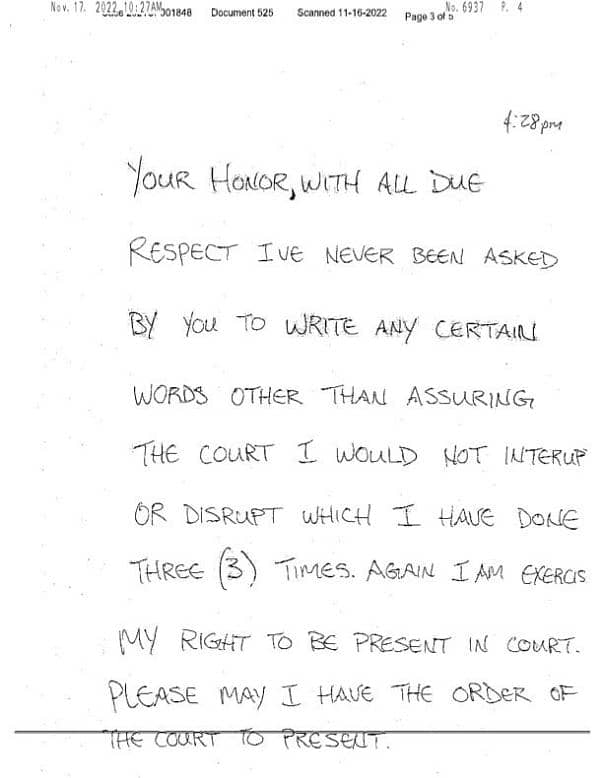 Nov. 17. 2022 10:27AM 001848 Document 525 Scanned 11-16-2022 Page 3 of 5 No. 6937 P. 4
4:28pm
YOUR HONOR, WITH ALL DUE
RESPECT IVE NEVER BEEN ASKED
BY YOU TO WRITE ANY CERTAIN
WORDS OTHER THAN ASSURING
THE COURT I WOULD NOT INTERUP
OR DISRUPT WHICH I HAVE DONE
THREE (3) TIMES. AGAIN I AM EXERCIS
MY RIGHT TO BE PRESENT IN COURT.
PLEASE MAY I HAVE THE ORDER OF
THE COURT TO PRESENT.